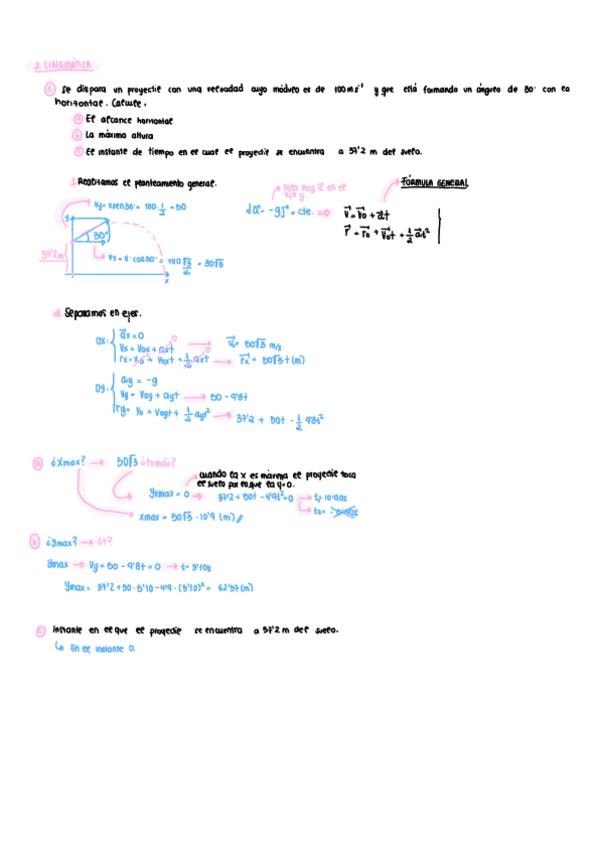 1. CINEMÁTICA
① Se dispara un proyectil con una velocidad cuyo módulo es de 100 m s⁻¹ y que está formando un ángulo de 30° con la
horizontal. Calcule:
ⓐ El alcance horizontal
ⓑ La máxima altura
ⓒ El instante de tiempo en el cual el proyectil se encuentra a 37'2 m del suelo.
1. Realizamos el planteamiento general.
FÓRMULA GENERAL
eje y
Vy = v·sen30° = 100 · 1/2 = 50
= -g j = cte. ⇒
v = v₀ + at
r = r₀ + v₀t + 1/2 at²
y
30°
37'2m
Vx = v · cos30° = 100 √3/2 = 50√3
x
2. Separamos en ejes.
OX:
ax = 0
Vx = V0x + axt → Vx = 50√3 m/s
rx = x₀ + V0xt + 1/2 axt → rx = 50√3 t (m)
OY:
ay = -g
Vy = V0y + ayt → 50 - 9'8t
ry = Y₀ + V0yt + 1/2 ayt² → 37'2 + 50t - 1/2 9'8t²
ⓐ ¿Xmax? → 50√3 ¿txmáx?
cuando la x es máxima el proyectil toca
el suelo por lo que la y=0.
Yxmax = 0 → 37'2 + 50t - 4'9t² = 0 → t₁
t₂ =
xmax = 50√3 · 10'9 (m)
ⓑ ¿Ymax? → ¿t?
Ymax → Vy = 50 - 9'8t = 0 → t = 5'10s
Ymax = 37'2 + 50 · 5'10 - 4'9 · (5'10)² = (m)
ⓒ Instante en el que el proyectil se encuentra a 37'2 m del suelo.
↳ En el instante 0